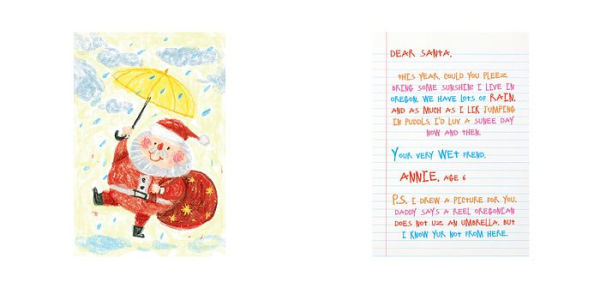 DEAR SANTA,
THIS YEAR, COULD YOU PLEEZE
BRING SOME SUNSHINE I LIVE IN
OREGON. WE HAVE LOTS OF RAIN.
AND AS MUCH AS I LIK JUMPING
IN PUDDLS, I'D LUV A SUNEE DAY
NOW AND THEN.
YOUR VERY WET FREND,
ANNIE, AGE 6
P.S. I DREW A PICTURE FOR YOU.
DADDY SAYS A REEL OREGONIAN
DOES NOT USE AN UMBRELLA. BUT
I KNOW YUR NOT FROM HERE.